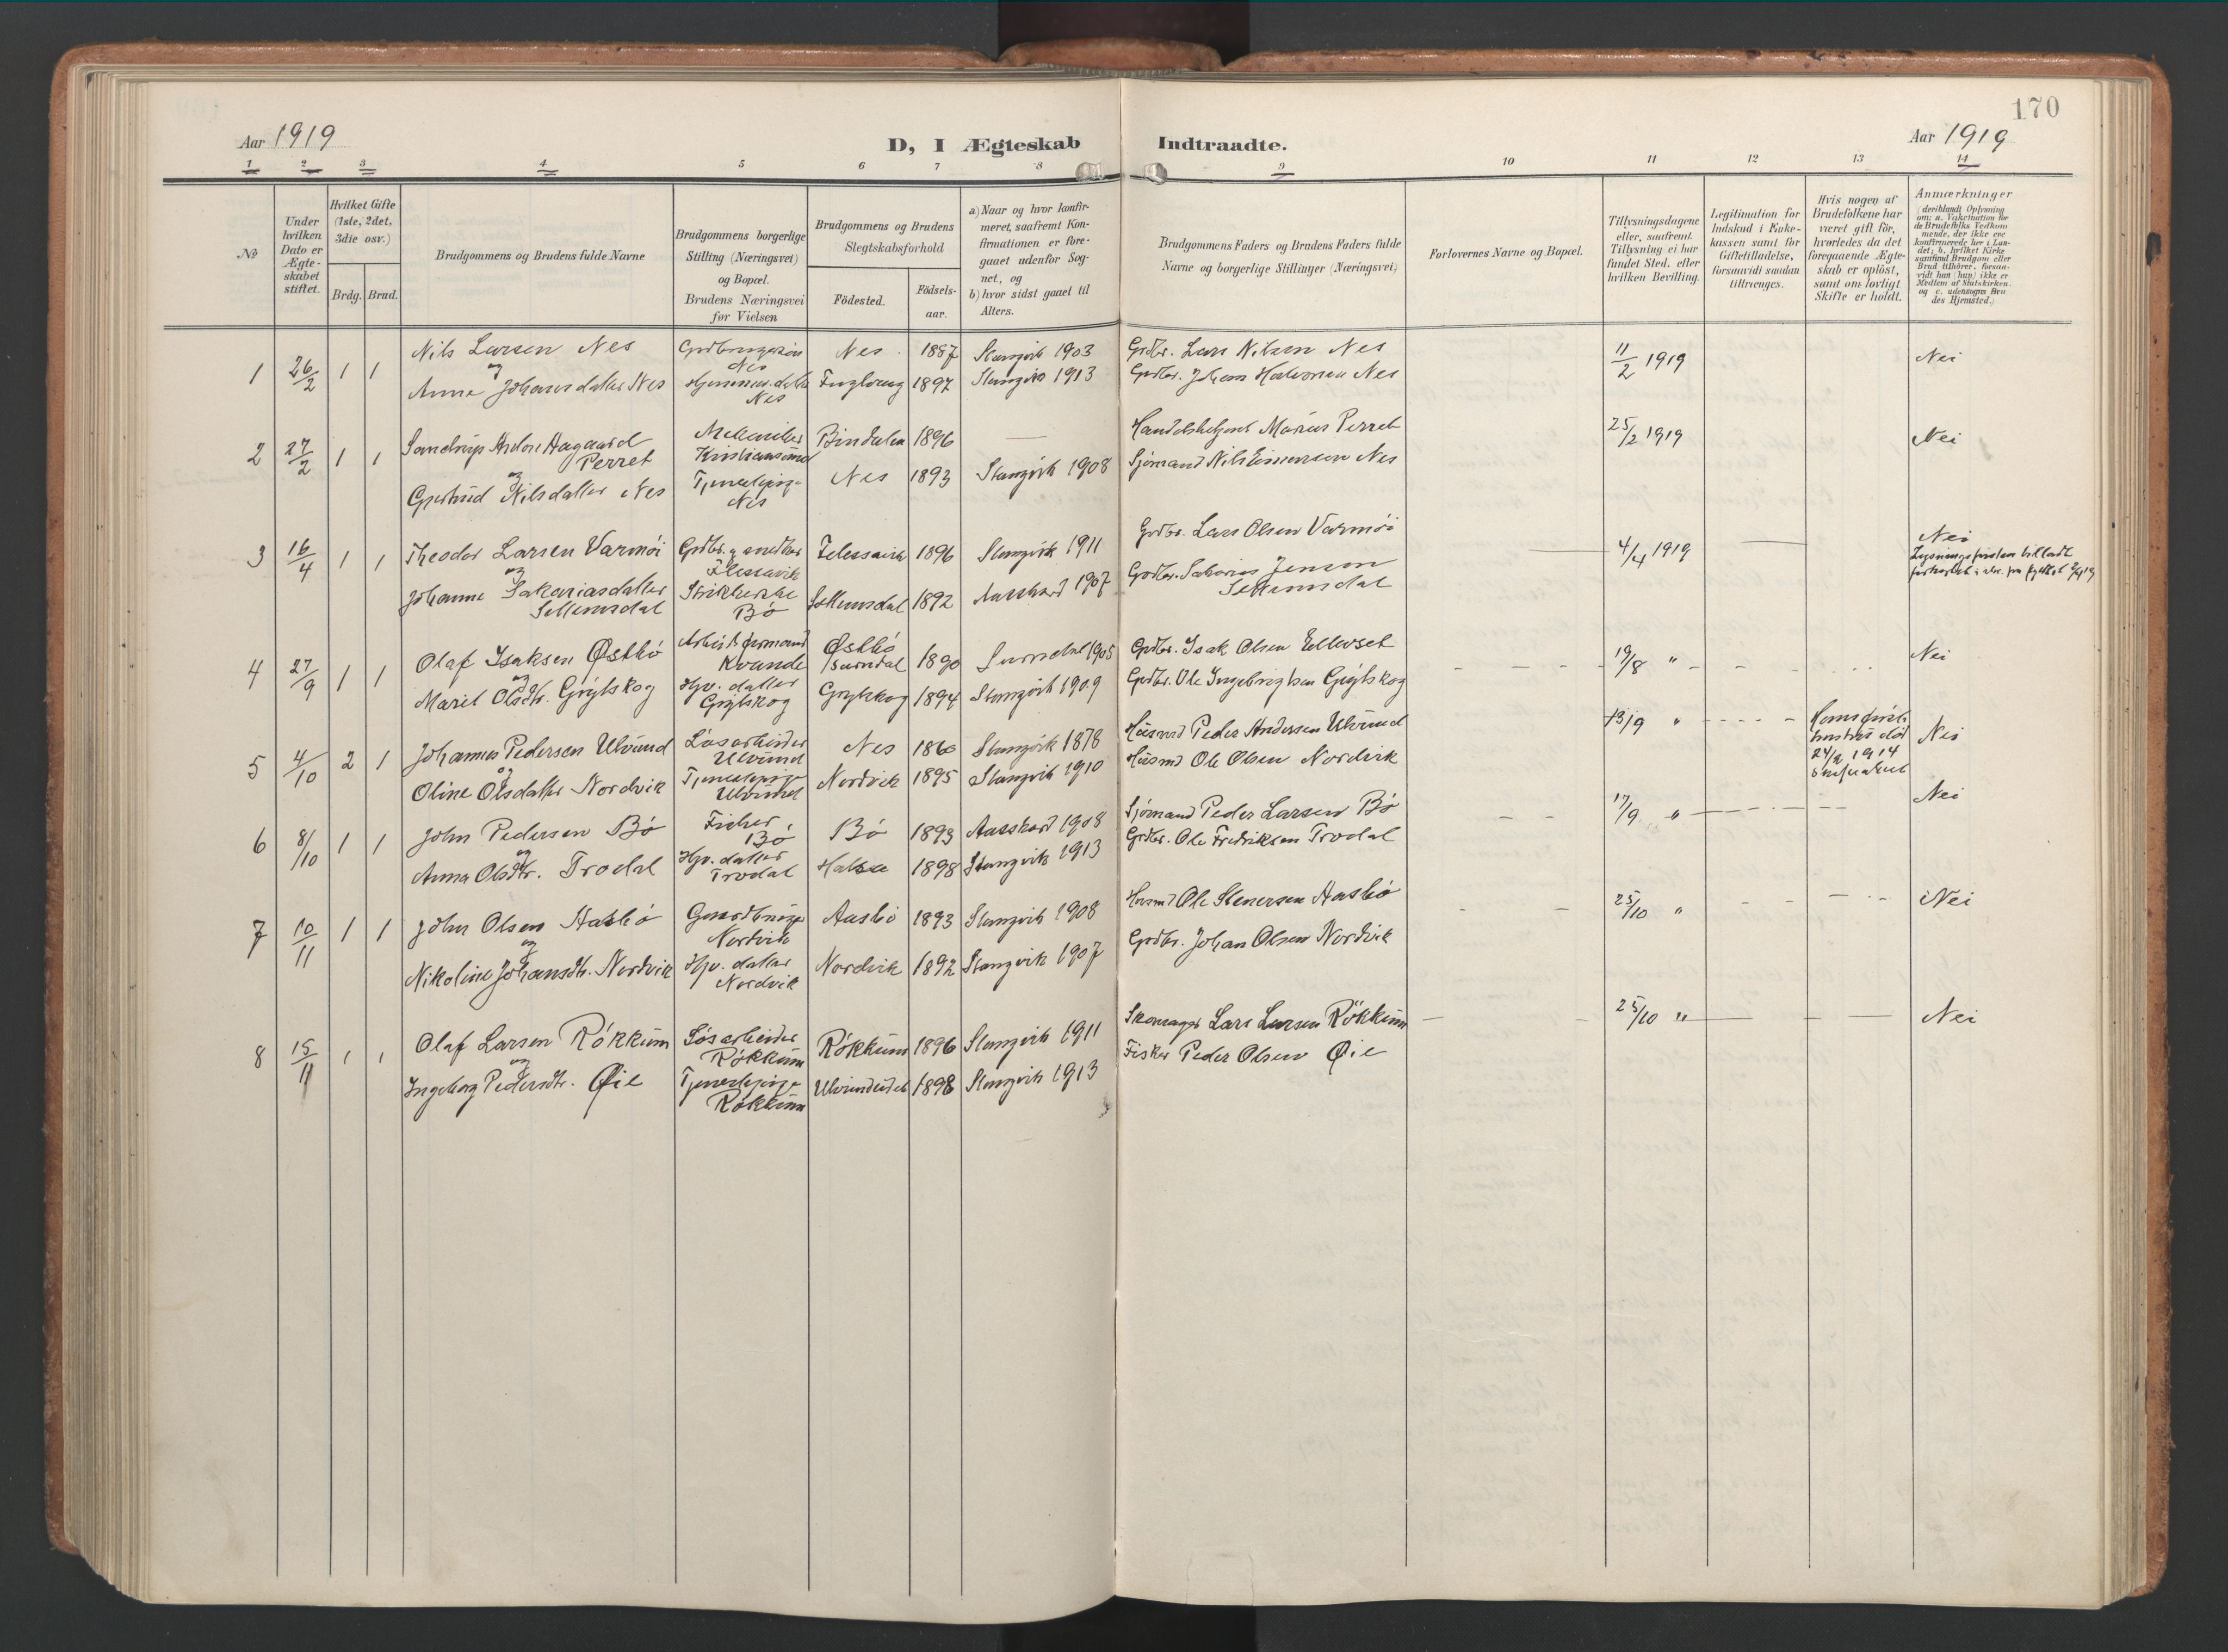 170
Aar 1919
D, I Ægteskab Indtraadte.
Aar 1919
1 2 3 4 5 6 7 8 9 10 11 12 13 14
№
Under
hvilken
Dato er
Ægte-
skabet
stiftet.
Hvilket Gifte
(1ste, 2det,
3die osv.)
Brdg. Brud.
Brudgommens og Brudens fulde Navne
Brudgommens borgerlige
Stilling (Næringsvei)
og Bopæl.
Brudens Næringsvei
før Vielsen
Brudgommens og Brudens
Slegtskabsforhold
Födested.
Födsels-
aar.
a) Naar og hvor konfir-
meret, saafremt Kon-
firmationen er fore-
gaaet udenfor Sog-
net, og
b) hvor sidst gaaet til
Alters.
Brudgommens Faders og Brudens Faders fulde
Navne og borgerlige Stillinger (Næringsvei)
Forlovernes Navne og Bopæl.
Tillysningsdagene
eller, saafremt
Tillysning ei har
fundet Sted, efter
hvilken Bevilling.
Legitimation for
Indskud i Enke-
kassen samt for
Giftetilladelse,
forsaavidt saadan
tiltrænges.
Hvis nogen af
Brudefolkene har
været gift før,
hvorledes da det
foregaaende Ægte-
skab er oplöst,
samt om lovligt
Skifte er holdt.
Anmærkninger
(deriblandt Oplysning
om: a. Vakcination for
de Brudefolks Vedkom
mende, der ikke ere
konfirmerede her i Lan-
det; b. hvilket Kirke-
samfund Brudgom eller
Brud tilhører, forsaa-
vidt han (hun) ikke er
Medlem af Statskirken.
og c. udensogns Bru
des Hjemsted.)
1 26/2 1 1 Nils Larsen Nes Nes 1887 Stangvik 1903 Grdbr. Lars Nilsen Nes 11/2 1919 Nei
og Nes
Anne Johansdatter Nes Fuglvaag 1897 Stangvik 1913 Grdbr. Johan Halvorsen Nes
Nes
2 27/2 1 1 Sandrup Anton Aagaard Mekaniker Bindalen 1896 — Handelsbetjent Marius Perret 25/2 1919 Nei
Perret Kristiansund
og
Gjertrud Nilsdatter Nes Tjenestepige Nes 1893 Stangvik 1908 Sjømand Nils Einersen Nes
Nes
3 16/4 1 1 Theodor Larsen Varmöi Grdbr. og snedker 1896 Stangvik 1911 Grdbr. Lars Olsen Varmöi 4/4 1919 — Nei
og Flessavik
Johanne Sakariasdatter Settemsdal 1892 Aasskard 1907 Grdbr. Sakarias Jensen
Settemsdal Bö Settemsdal
4 27/9 1 1 Olaf Isaksen Østbö Arbeidsformand Østbö 1890 Surndal 1905 Grdbr. Isak Olsen Ellevset 19/8 " Nei
og Kvande /Surndal
Marit Olsdtr. Grytskog Hjv. datter Grytskog 1894 Stangvik 1909 Grdbr. Ole Ingebrigtsen Grytskog
Grytskog
5 4/10 2 1 Johannes Pedersen Ulvund Løsarbeider Nes 1860 Stangvik 1878 Husmand Peder Andersen Ulvund 13/9 " Hans første Nei
og Ulvund hustru död
Oline Olsdatter Nordvik Tjenestepige Nordvik 1895 Stangvik 1910 Husmd Ole Olsen Nordvik 1914
Ulvund
6 8/10 1 1 John Pedersen Bö Fisker, Bö 1893 Aasskard 1908 Sjømand Peder Larsen Bö 17/9 " Nei
og Bö
Anna Olsdtr. Trodal Hjv. datter Halsa 1898 Stangvik 1913 Grdbr. Ole Fredriksen Trodal
Trodal
7 10/11 1 1 John Olsen Aasbö Gaardbruger Aasbö 1893 Stangvik 1908 Husmd Ole Stenersen Aasbö 25/10 " Nei
og Nordvik
Nikoline Johansdtr. Nordvik Hjv. datter Nordvik 1892 Stangvik 1907 Grdbr. Johan Olsen Nordvik
Nordvik
8 15/11 1 1 Olaf Larsen Rökkum Løsarbeider Rökkum 1896 Stangvik 1911 Skomager Lars Larsen Rökkum 25/10 " Nei
og Rökkum
Ingeborg Pedersdtr. Øie Tjenestepige 1898 Stangvik 1913 Fisker Peder Olsen Øie
Rökkum